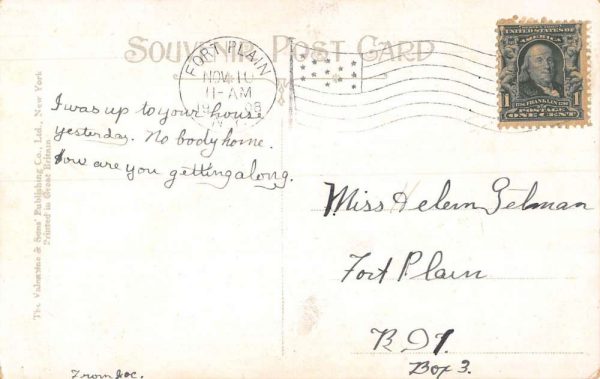 SOUVENIR POST CARD
FORT PLAIN
NOV 10
11-AM
1908
N.Y.
UNITED STATES OF
AMERICA
1 FRANKLIN 1
POSTAGE
ONE CENT
The Valentine & Sons' Publishing Co., Ltd., New York
Printed in Great Britain
I was up to your house
yesterday. No body home.
How are you getting along.
Miss Helen Gelman
Fort Plain
Box 3.
From Joe.